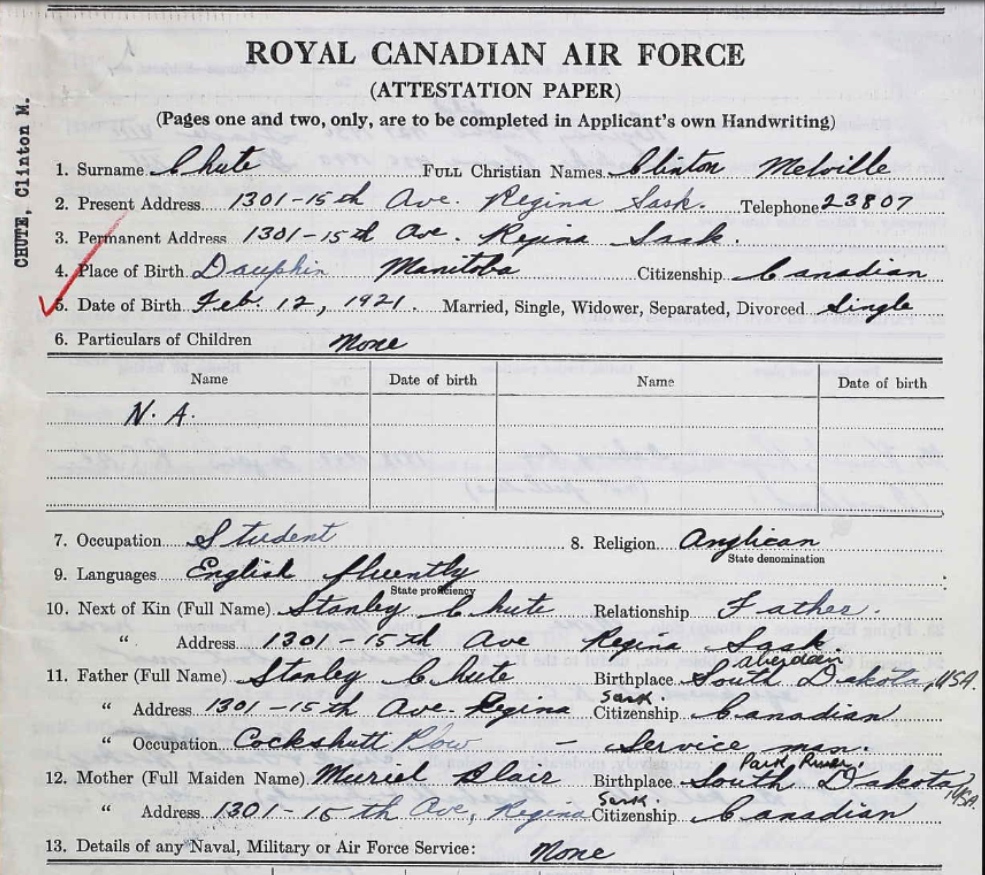 CHUTE, Clinton M.
ROYAL CANADIAN AIR FORCE
(ATTESTATION PAPER)
(Pages one and two, only, are to be completed in Applicant's own Handwriting)
1. Surname Chute FULL Christian Names Clinton Melville
2. Present Address 1301-15th Ave. Regina Sask. Telephone 23807
3. Permanent Address 1301-15th Ave. Regina Sask.
4. Place of Birth Dauphin Manitoba Citizenship Canadian
5. Date of Birth Feb. 12, 1921. Married, Single, Widower, Separated, Divorced Single
6. Particulars of Children None
Name Date of birth Name Date of birth
N. A.
7. Occupation Student 8. Religion Anglican
State denomination
9. Languages English fluently
State proficiency
10. Next of Kin (Full Name) Stanley Chute Relationship Father.
" Address 1301-15th Ave Regina Sask.
Aberdeen
11. Father (Full Name) Stanley Chute Birthplace South Dakota, USA.
Sask.
" Address 1301-15th Ave. Regina Citizenship Canadian
" Occupation Cockshutt Plow - Service man.
Park River,
12. Mother (Full Maiden Name) Muriel Blair Birthplace South Dakota, USA.
Sask.
" Address 1301-15th Ave, Regina Citizenship Canadian
13. Details of any Naval, Military or Air Force Service: None